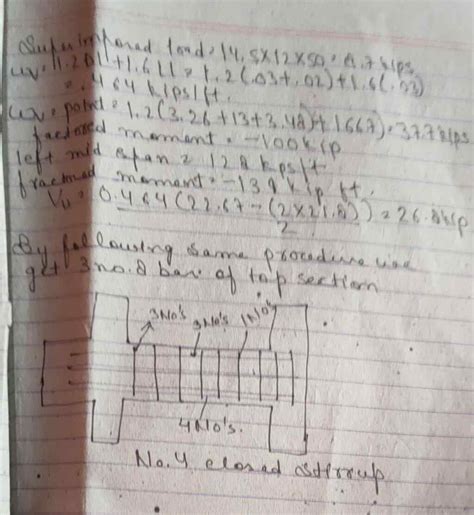 Superimposed load = 14.5x12x50 = 8.7 kips
wv = 1.2D1 + 1.6L1 = 1.2(.03+.02)+1.6(.03)
= .464 kips/ft.
wv = point = 1.2(3.26+13+3.48)+1.6(6.7) = 37.7 kips.
factored moment = -100 k ip
left mid span = 128 kps/ft
fractmed moment = -139 k ip ft.
Vu = 0.464(22.67-(2x21.8)) = 26.8 kip
2
By following same procedure we
get 3 no.8 bar of top section
3No's
3No's
1No's
4No's.
No.4 closed stirrup